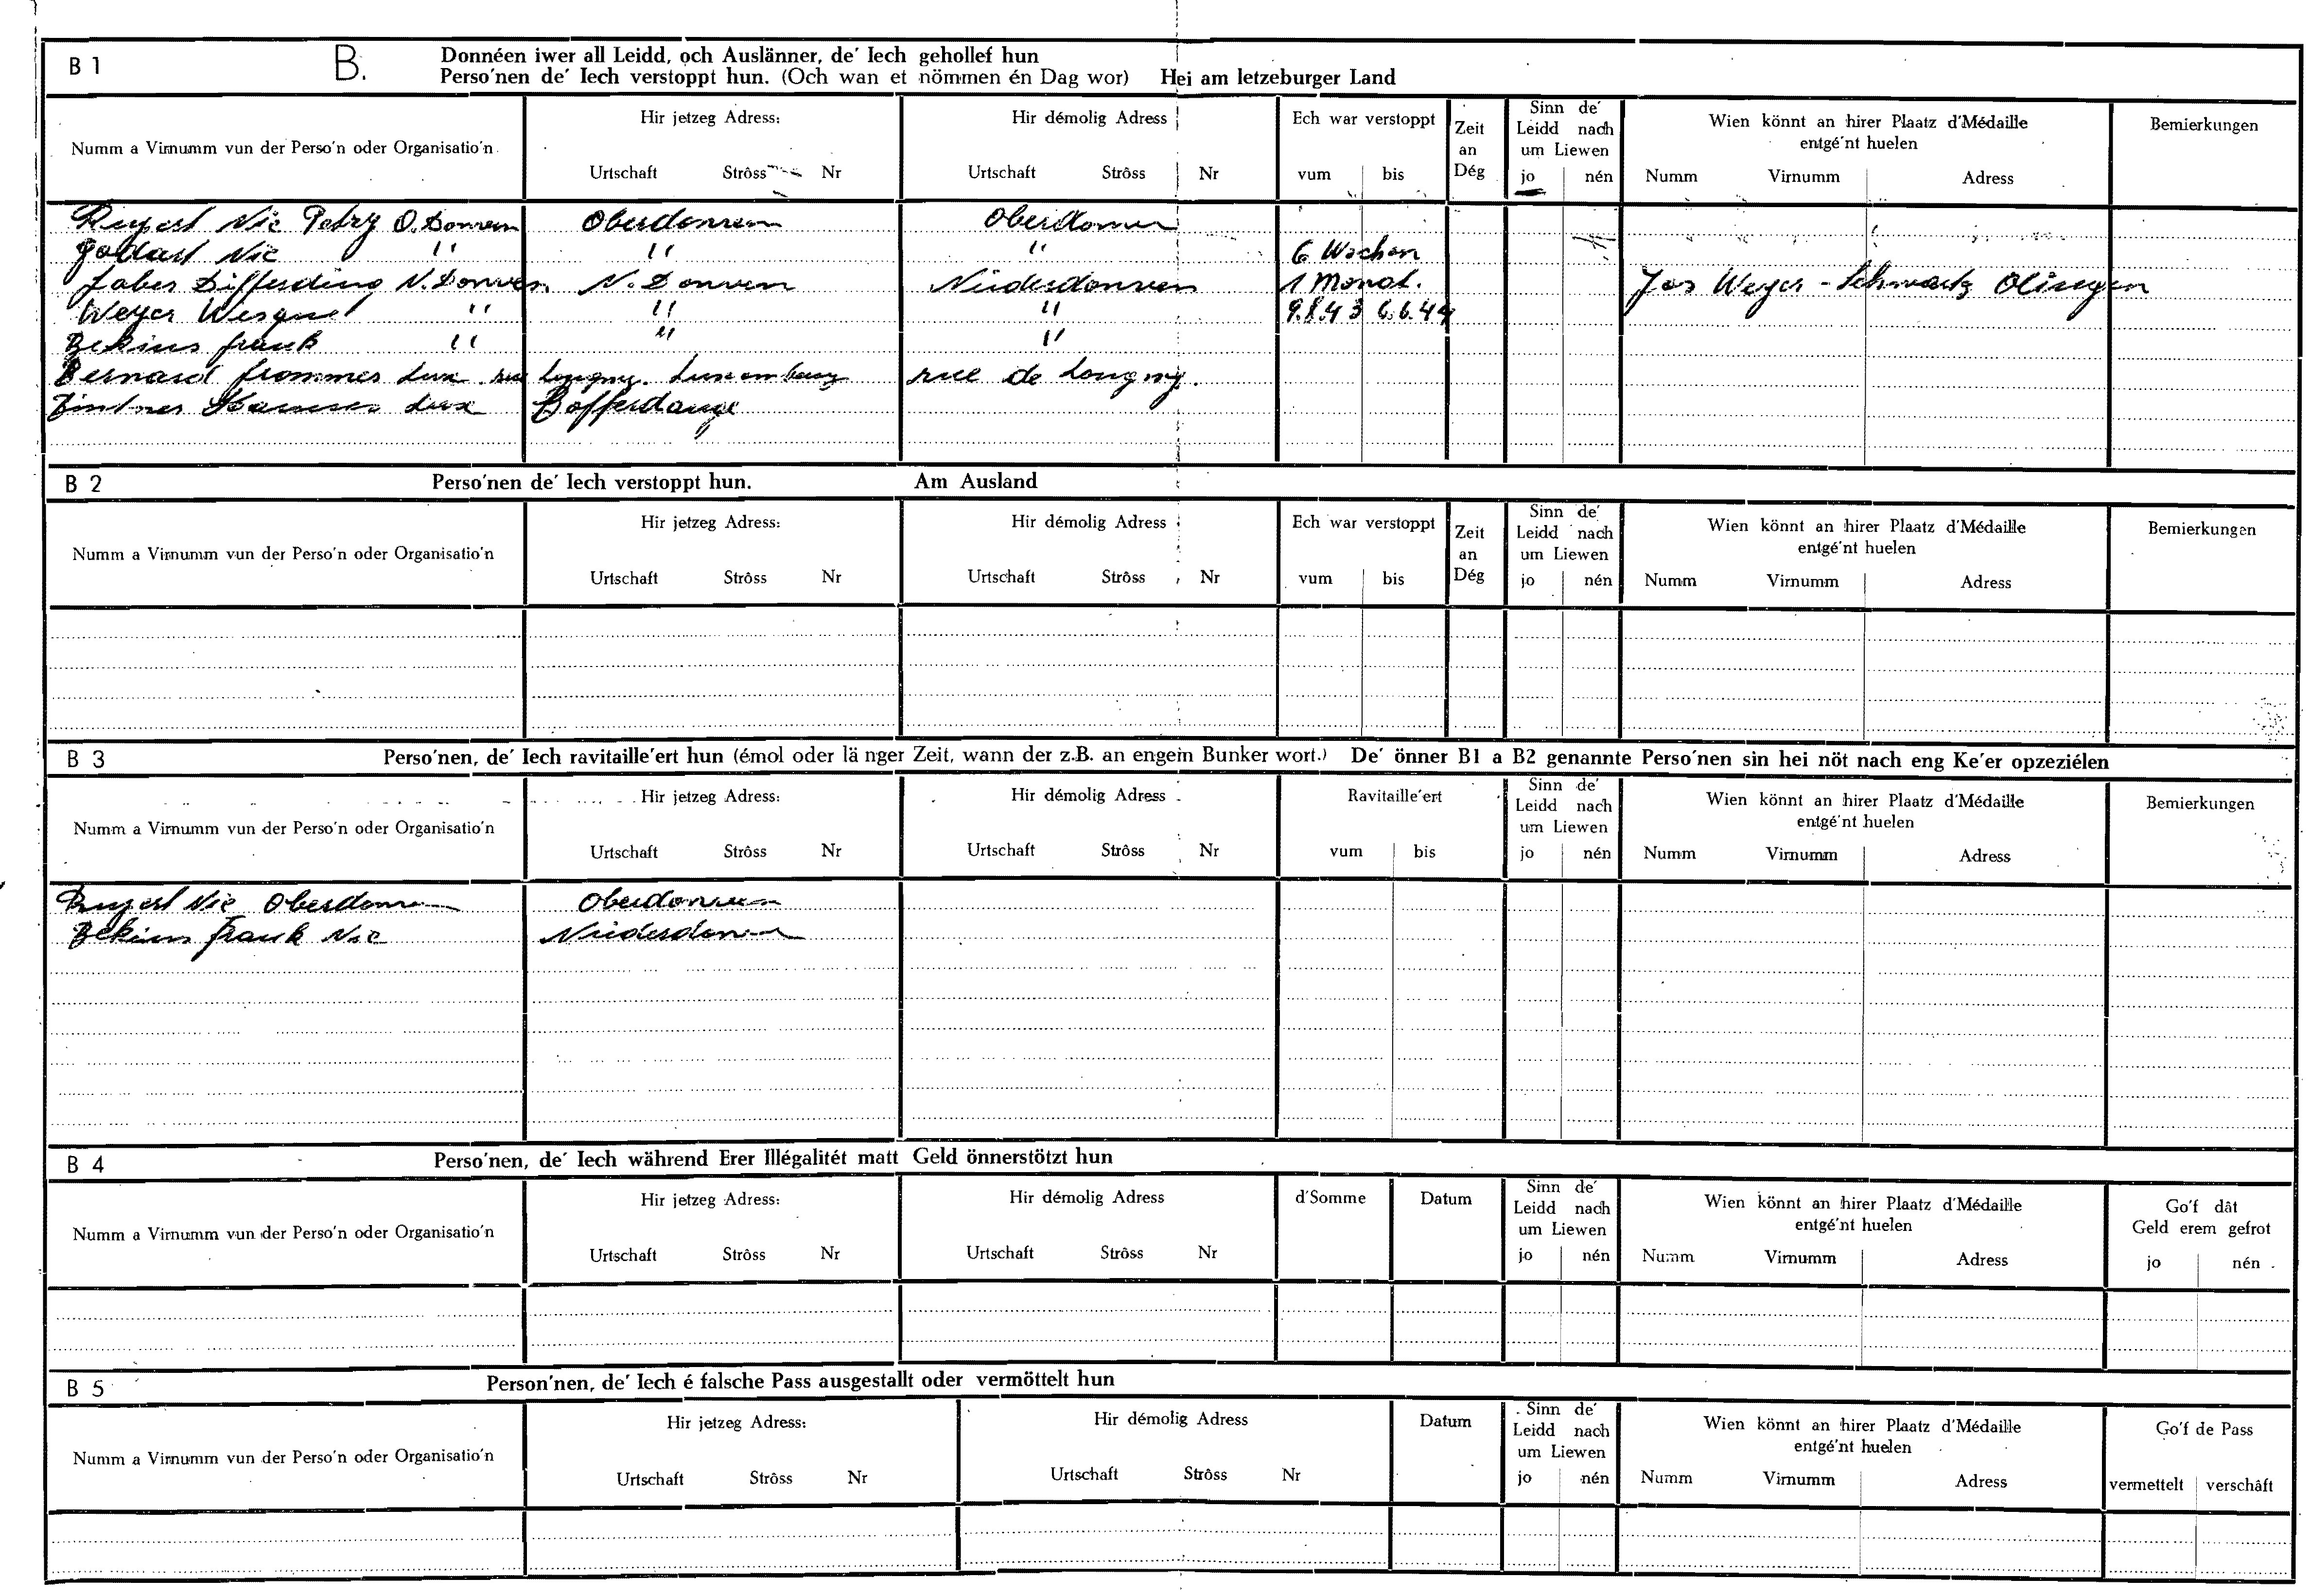 B 1 B. Donnéen iwer all Leidd, och Auslänner, de´ Iech gehollef hun
Perso´nen de´ Iech verstoppt hun. (Och wan et nömmen én Dag wor) Hei am letzeburger Land
Numm a Virnumm vun der Perso´n oder Organisatio´n
Hir jetzeg Adress:
Urtschaft Strôss Nr
Hir démolig Adress
Urtschaft Strôss Nr
Ech war verstoppt
vum bis
Zeit
an
Dég
Sinn de´
Leidd nach
um Liewen
jo nén
Wien könnt an hirer Plaatz d´Médaille
entgé´nt huelen
Numm Virnumm Adress
Bemierkungen
Nic Petry O. Donven Oberdonven Oberdonven
Nic " " " 6 Wochen
Faber Differding N. Donven N. Donven Niederdonven 1 Monat. Jos Weyer - Schwartz Olingen
Weyer " " " 9.8.43 6.6.44
Bekius Frank " " "
Bernard Frommes Lux. rue Longwy. Luxemburg rue de Longwy.
Lux Bofferdange
B 2 Perso´nen de´ Iech verstoppt hun. Am Ausland
Numm a Virnumm vun der Perso´n oder Organisatio´n
Hir jetzeg Adress:
Urtschaft Strôss Nr
Hir démolig Adress
Urtschaft Strôss Nr
Ech war verstoppt
vum bis
Zeit
an
Dég
Sinn de´
Leidd nach
um Liewen
jo nén
Wien könnt an hirer Plaatz d´Médaille
entgé´nt huelen
Numm Virnumm Adress
Bemierkungen
B 3 Perso´nen, de´ Iech ravitaille´ert hun (émol oder länger Zeit, wann der z.B. an engem Bunker wort.) De´ önner B1 a B2 genannte Perso´nen sin hei nöt nach eng Ke´er opzeziélen
Numm a Virnumm vun der Perso´n oder Organisatio´n
Hir jetzeg Adress:
Urtschaft Strôss Nr
Hir démolig Adress
Urtschaft Strôss Nr
Ravitaille´ert
vum bis
Sinn de´
Leidd nach
um Liewen
jo nén
Wien könnt an hirer Plaatz d´Médaille
entgé´nt huelen
Numm Virnumm Adress
Bemierkungen
Nic Oberdonven Oberdonven
Bekius Frank Nic Niederdonven
B 4 Perso´nen, de´ Iech während Erer Illégalitét matt Geld önnerstötzt hun
Numm a Virnumm vun der Perso´n oder Organisatio´n
Hir jetzeg Adress:
Urtschaft Strôss Nr
Hir démolig Adress
Urtschaft Strôss Nr
d´Somme Datum
Sinn de´
Leidd nach
um Liewen
jo nén
Wien könnt an hirer Plaatz d´Médaille
entgé´nt huelen
Numm Virnumm Adress
Go´f dât
Geld erem gefrot
jo nén
B 5 Person´nen, de´ Iech é falsche Pass ausgestallt oder vermöttelt hun
Numm a Virnumm vun der Perso´n oder Organisatio´n
Hir jetzeg Adress:
Urtschaft Strôss Nr
Hir démolig Adress
Urtschaft Strôss Nr
Datum
Sinn de´
Leidd nach
um Liewen
jo nén
Wien könnt an hirer Plaatz d´Médaille
entgé´nt huelen
Numm Virnumm Adress
Go´f de Pass
vermettelt verschâft